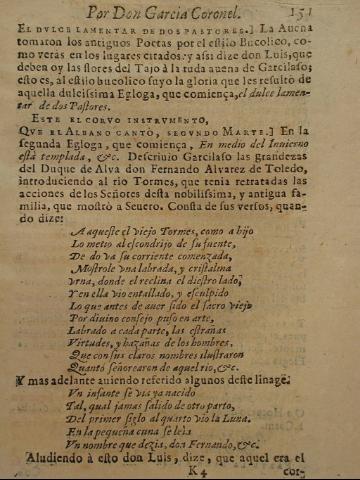 Por Don Garcia Coronel. 151
EL DVLCE LAMENTAR DE DOS PASTORES.] La Auena
tomaron los antiguos Poetas por el estilo Bucolico, co-
mo verás en los lugares citados: y asi dize don Luis, que
deben oy las flores del Tajo à la ruda auena de Garcilaso;
esto es, al estilo bucolico suyo la gloria que les resultò de
aquella dulcissima Egloga, que comiença, el dulce lamen-
tar de dos Pastores.
ESTE EL CORVO INSTRVMENTO,
QVE EL ALBANO CANTÒ, SEGVNDO MARTE.] En la
segunda Egloga, que comiença, En medio del Inuierno
està templada, &c. Descriuiò Garcilaso las grandezas
del Duque de Alva don Fernando Alvarez de Toledo,
introduciendo al rio Tormes, que tenia retratadas las
acciones de los Señores desta nobilissima, y antigua fa-
milia, que mostrò a Seuero. Consta de sus versos, quan-
do dize:
A aqueste el viejo Tormes, como a hijo
Lo metiò al escondrijo de su fuente,
De do va su corriente començada,
Mostrole vna labrada, y cristalina
vrna, donde el reclina el diestro lado,
Y en ella viò entallado, y esculpido
Lo que antes de auer sido el sacro viejo
Por diuino consejo puso en arte,
Labrado a cada parte, las estrañas
Virtudes, y hazañas de los hombres,
Que con sus claros nombres ilustraron
Quanto señorearon de aquel rio, &c.
Y mas adelante auiendo referido algunos deste linage:
Vn infante se via ya nacido
Tal, qual jamas salido de otro parto,
Del primer siglo al quarto viò la Luna.
En la pequeña cuna se leìa
Vn nombre que dezia, don Fernando, &c.
Aludiendo à esto don Luis, dize, que aquel era el
K 4 cor-